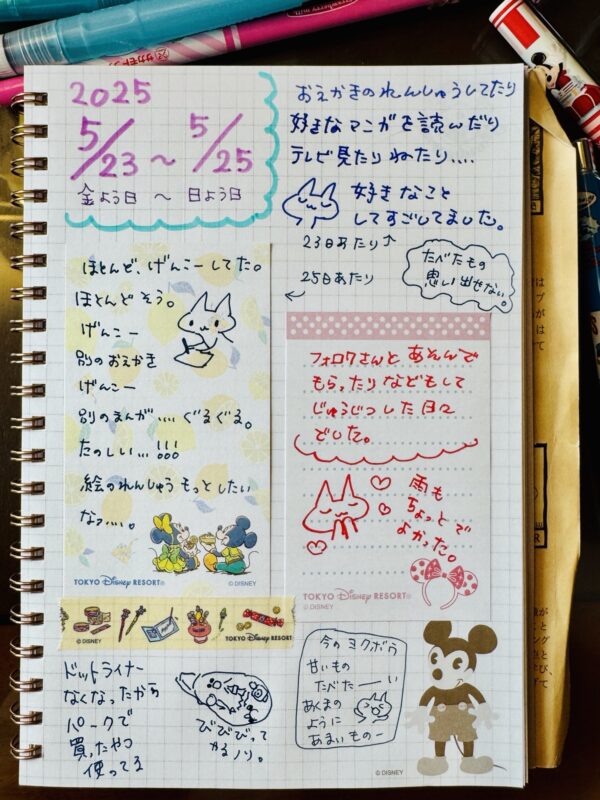 2025
5/23 ~ 5/25
金よう日 ~ 日よう日
おえかきのれんしゅうしてたり
好きなマンガを読んだり
テレビ見たりねたり....
好きなこと
してすごしてました。
23日あたり↑
25日あたり
↙
たべたもの
思い出せない。
ほとんど、げんこーしてた。
ほとんどそう。
げんこー
別のおえかき
げんこー
別のまんが....ぐるぐる。
たのしい...!!!
絵のれんしゅうもっとしたい
なっ....。
TOKYO Disney RESORT®
© DISNEY
フォロワさんとあそんで
もらったりなどもして
じゅうじつした日々
でした。
雨も
ちょっとで
よかった。
TOKYO Disney RESORT®
© DISNEY
© DISNEY
TOKYO Disney RESORT
ドットライナー
なくなったから
パークで
買ったやつ
使ってる
びびびって
かるノリ。
今のヨクボウ
甘いもの
たべたーーい
あくまの
ように
あまいものー
© DISNEY